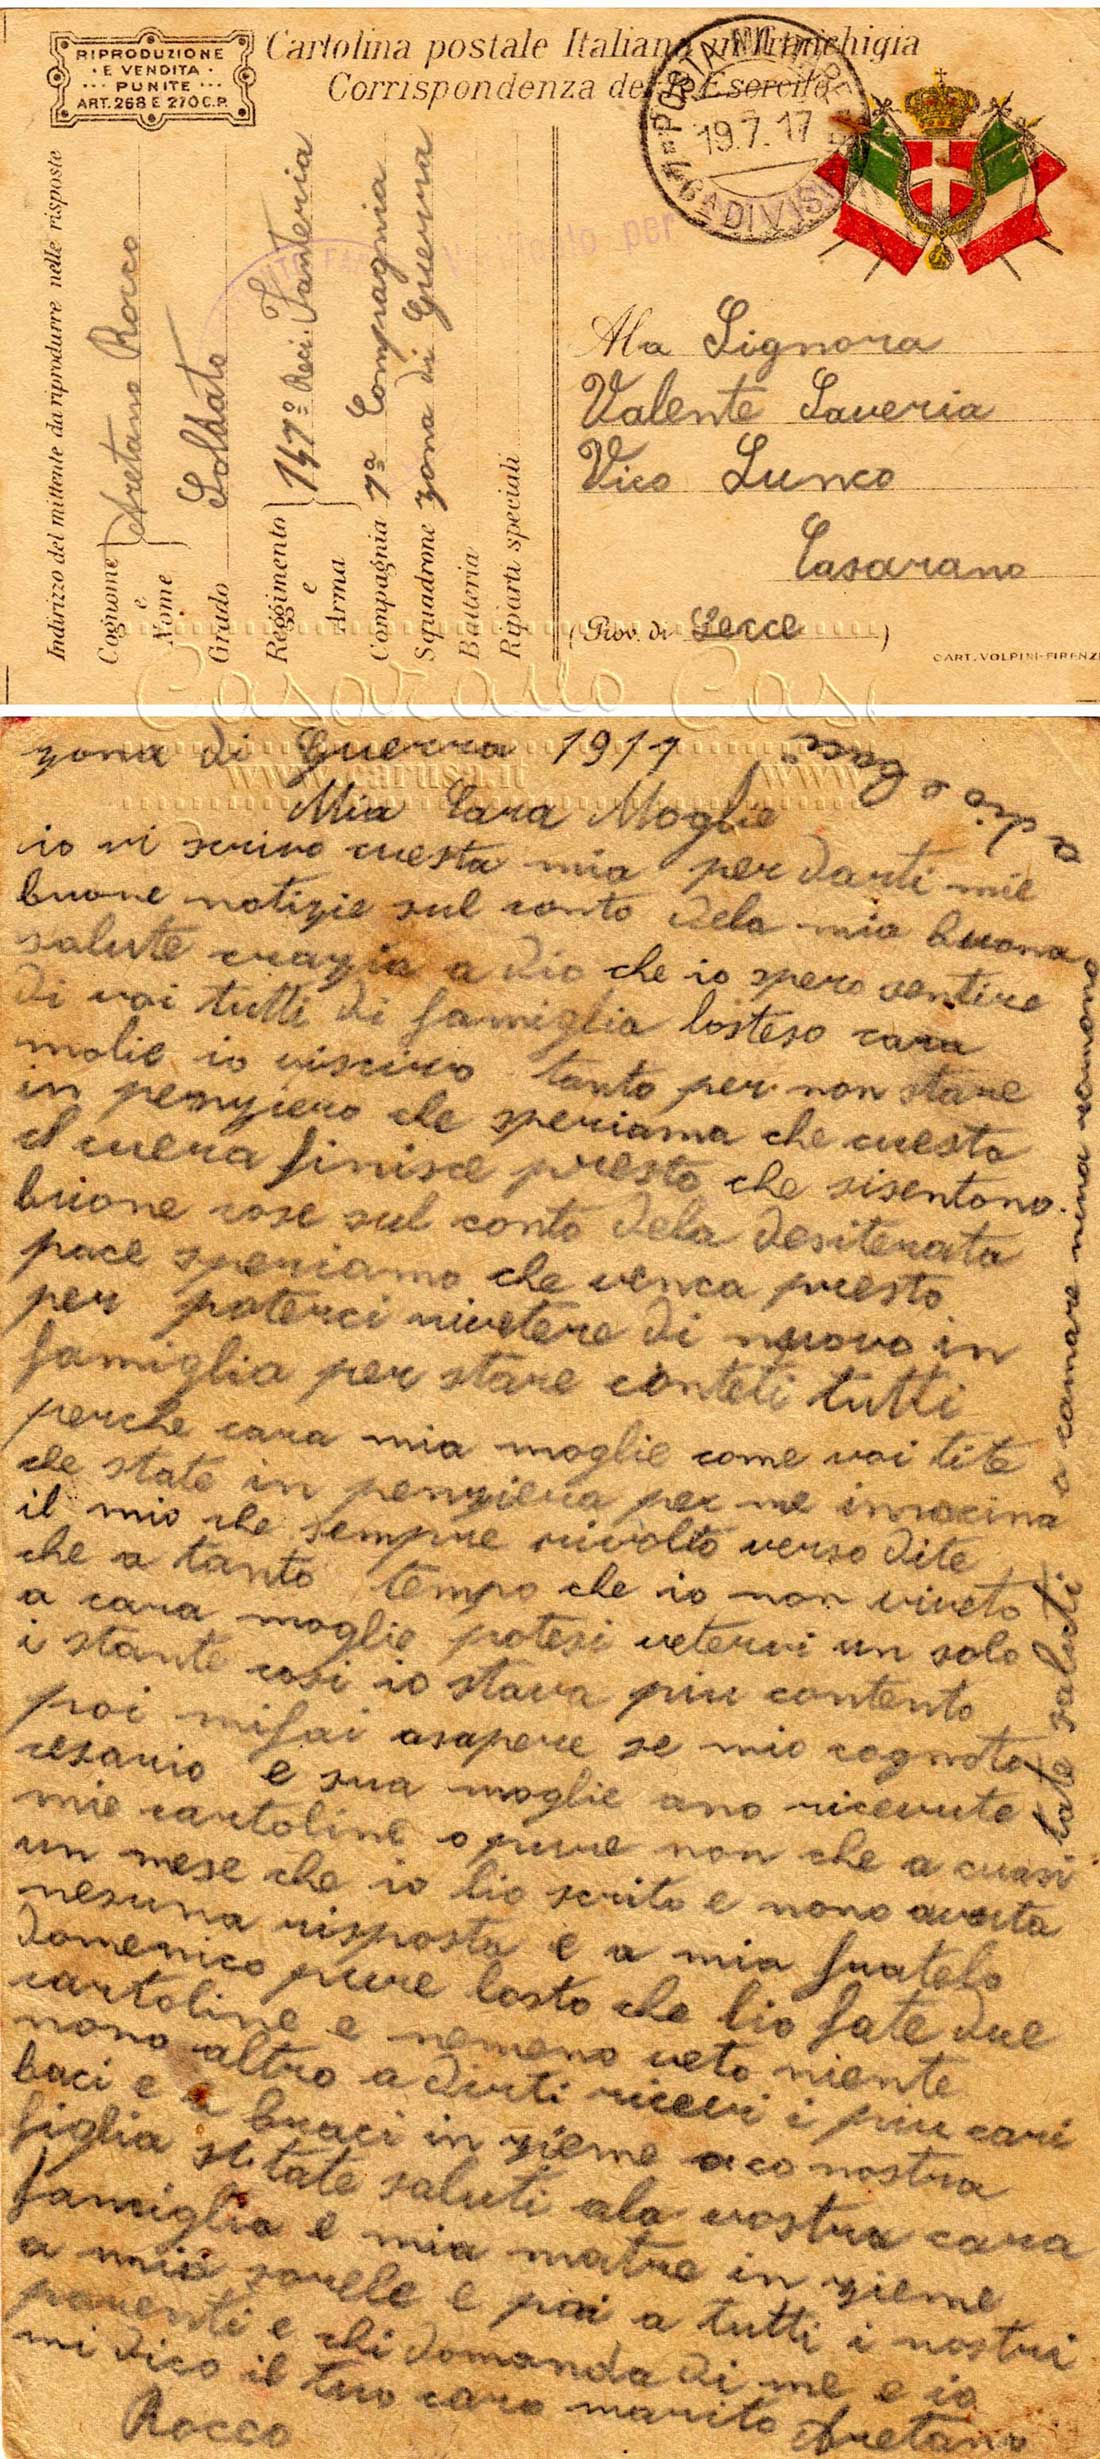 RIPRODUZIONE
E VENDITA
PUNITE
ART. 268 E 270 C.P.
Cartolina postale Italiana in franchigia
Corrispondenza del R. Esercito
POSTA MILITARE
19.7.17
46ª DIVISI
per
Indirizzo del mittente da riprodurre nelle risposte
Cognome e Nome } Aretano Rocco
Grado Soldato
Reggimento e Arma } 147º Reci. Fanteria
Compagnia 7ª Compagnia
Squadrone zona di Guerra
Batteria
Riparti speciali
Ala Signora
Valente Saveria
Vico Lunco
Casarano
(Prov. di Lecce)
CART. VOLPINI-FIRENZE
Casarano Casa
www.carusa.it
www
zona di Guerra 1917
Mia Cara Moglie
io vi scrivo cuesta mia per darti mie
buone notizie sul conto dela mia buona
salute crazia a dio che io spero sentire
di voi tutti di famiglia losteso cara
molie io viscrivo tanto per non stare
in penziero che speriama che cuesta
cuera finisce presto che sisentono
buone cose sul conto dela desiterata
pace speriamo che venca presto
per poterci rivetere di nuovo in
famiglia per stare conteti tutti
perche cara mia moglie come voi tite
che state in penziera per me immacina
il mio che sempre rivolto verso dite
che a tanto tempo che io non viveto
a cara moglie potesi vetervi un solo
i stante cosi io stava piu contento
poi mifai asapere se mio cognoto
cesario e sua moglie ano ricevute
mie cartoline o pure non che a cuasi
un mese che io lio scrito e nono avuta
nesuna risposta e a mia fratelo
domenico pure losto che lio fate due
cartoline e nemeno veto niente
nono altro a dirti ricevi i piu cari
baci e a braci in zieme aco nostra
figlia tate saluti ala vostra cara
famiglia e mia matre in zieme
a mie sorele e poi a tutti i nostri
parenti e chi domanda di me e io
mi dico il tuo caro marito Aretano
Rocco
tate saluti a comare nina